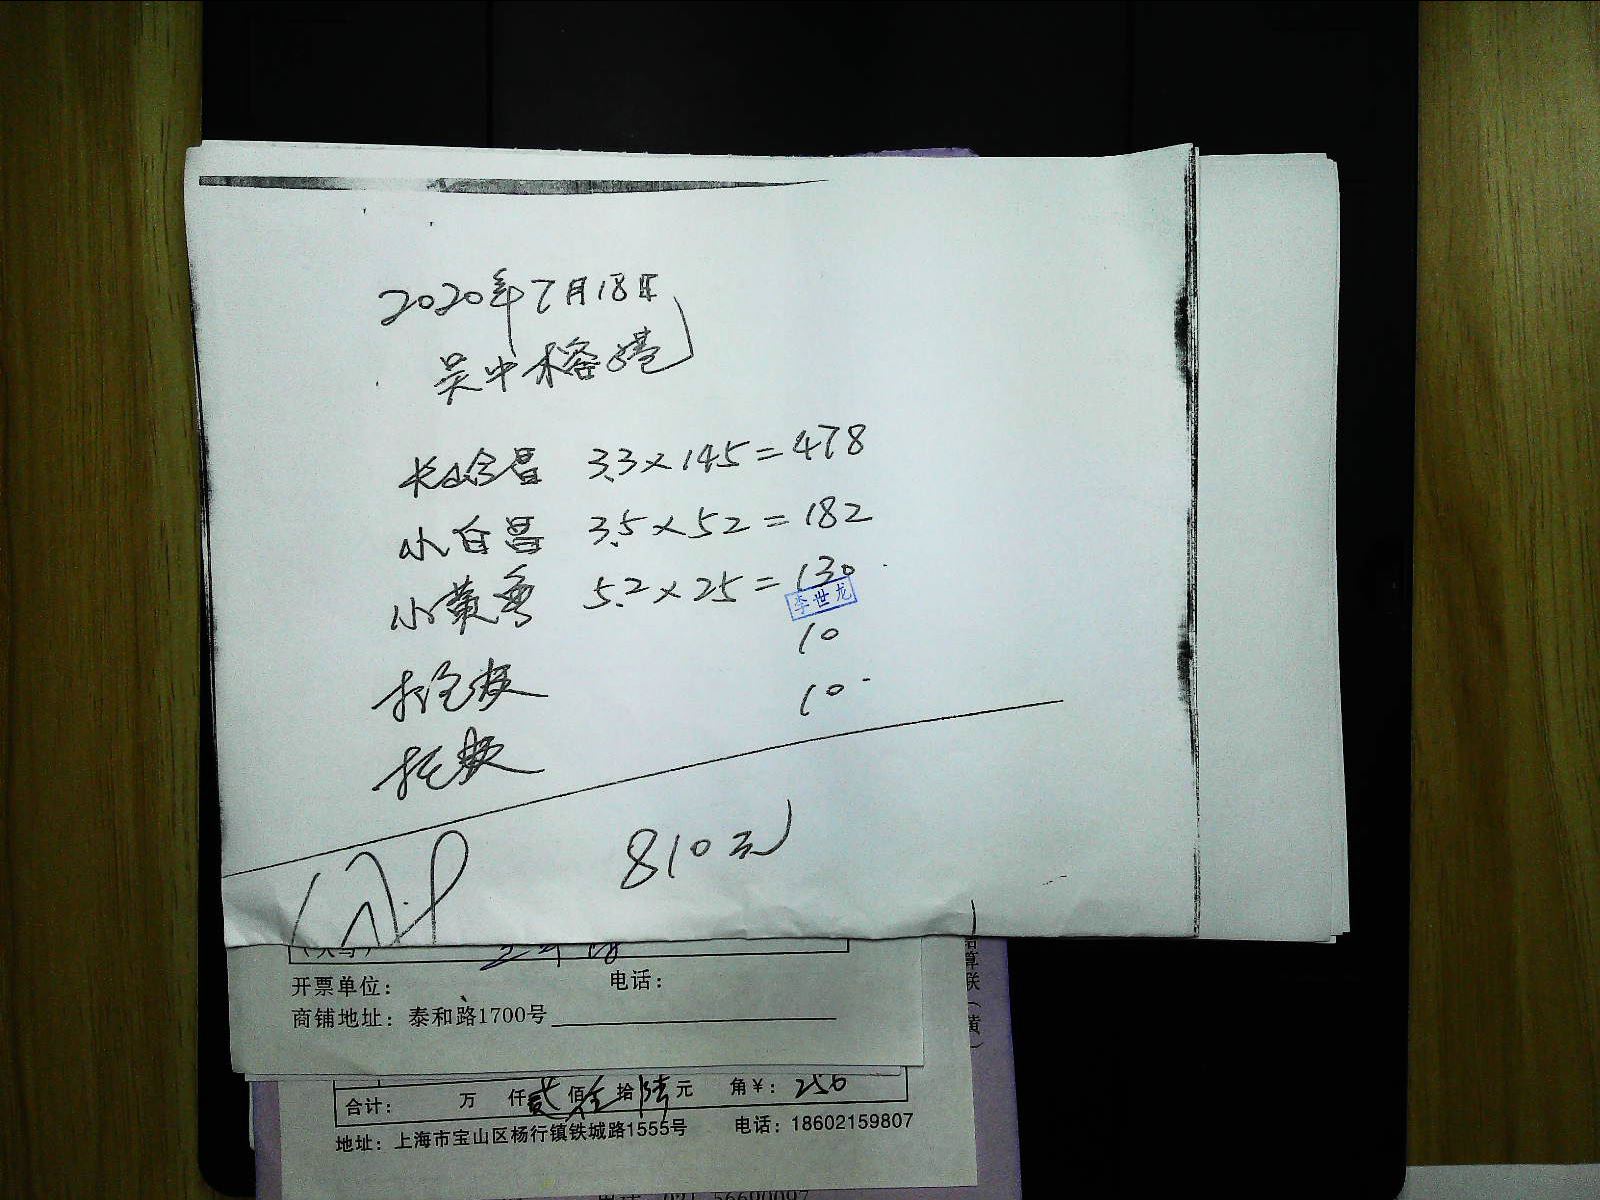 2020年7月18日
吴中榕港
3.3×145=478
小白昌 3.5×52=182
小黄鱼 5.2×25=130
李世龙
10
10
810元
开票单位： 电话：
商铺地址：泰和路1700号
合计： 万 仟贰佰 拾陆元 角￥：256
地址：上海市宝山区杨行镇铁城路1555号 电话：18602159807
算联（黄）